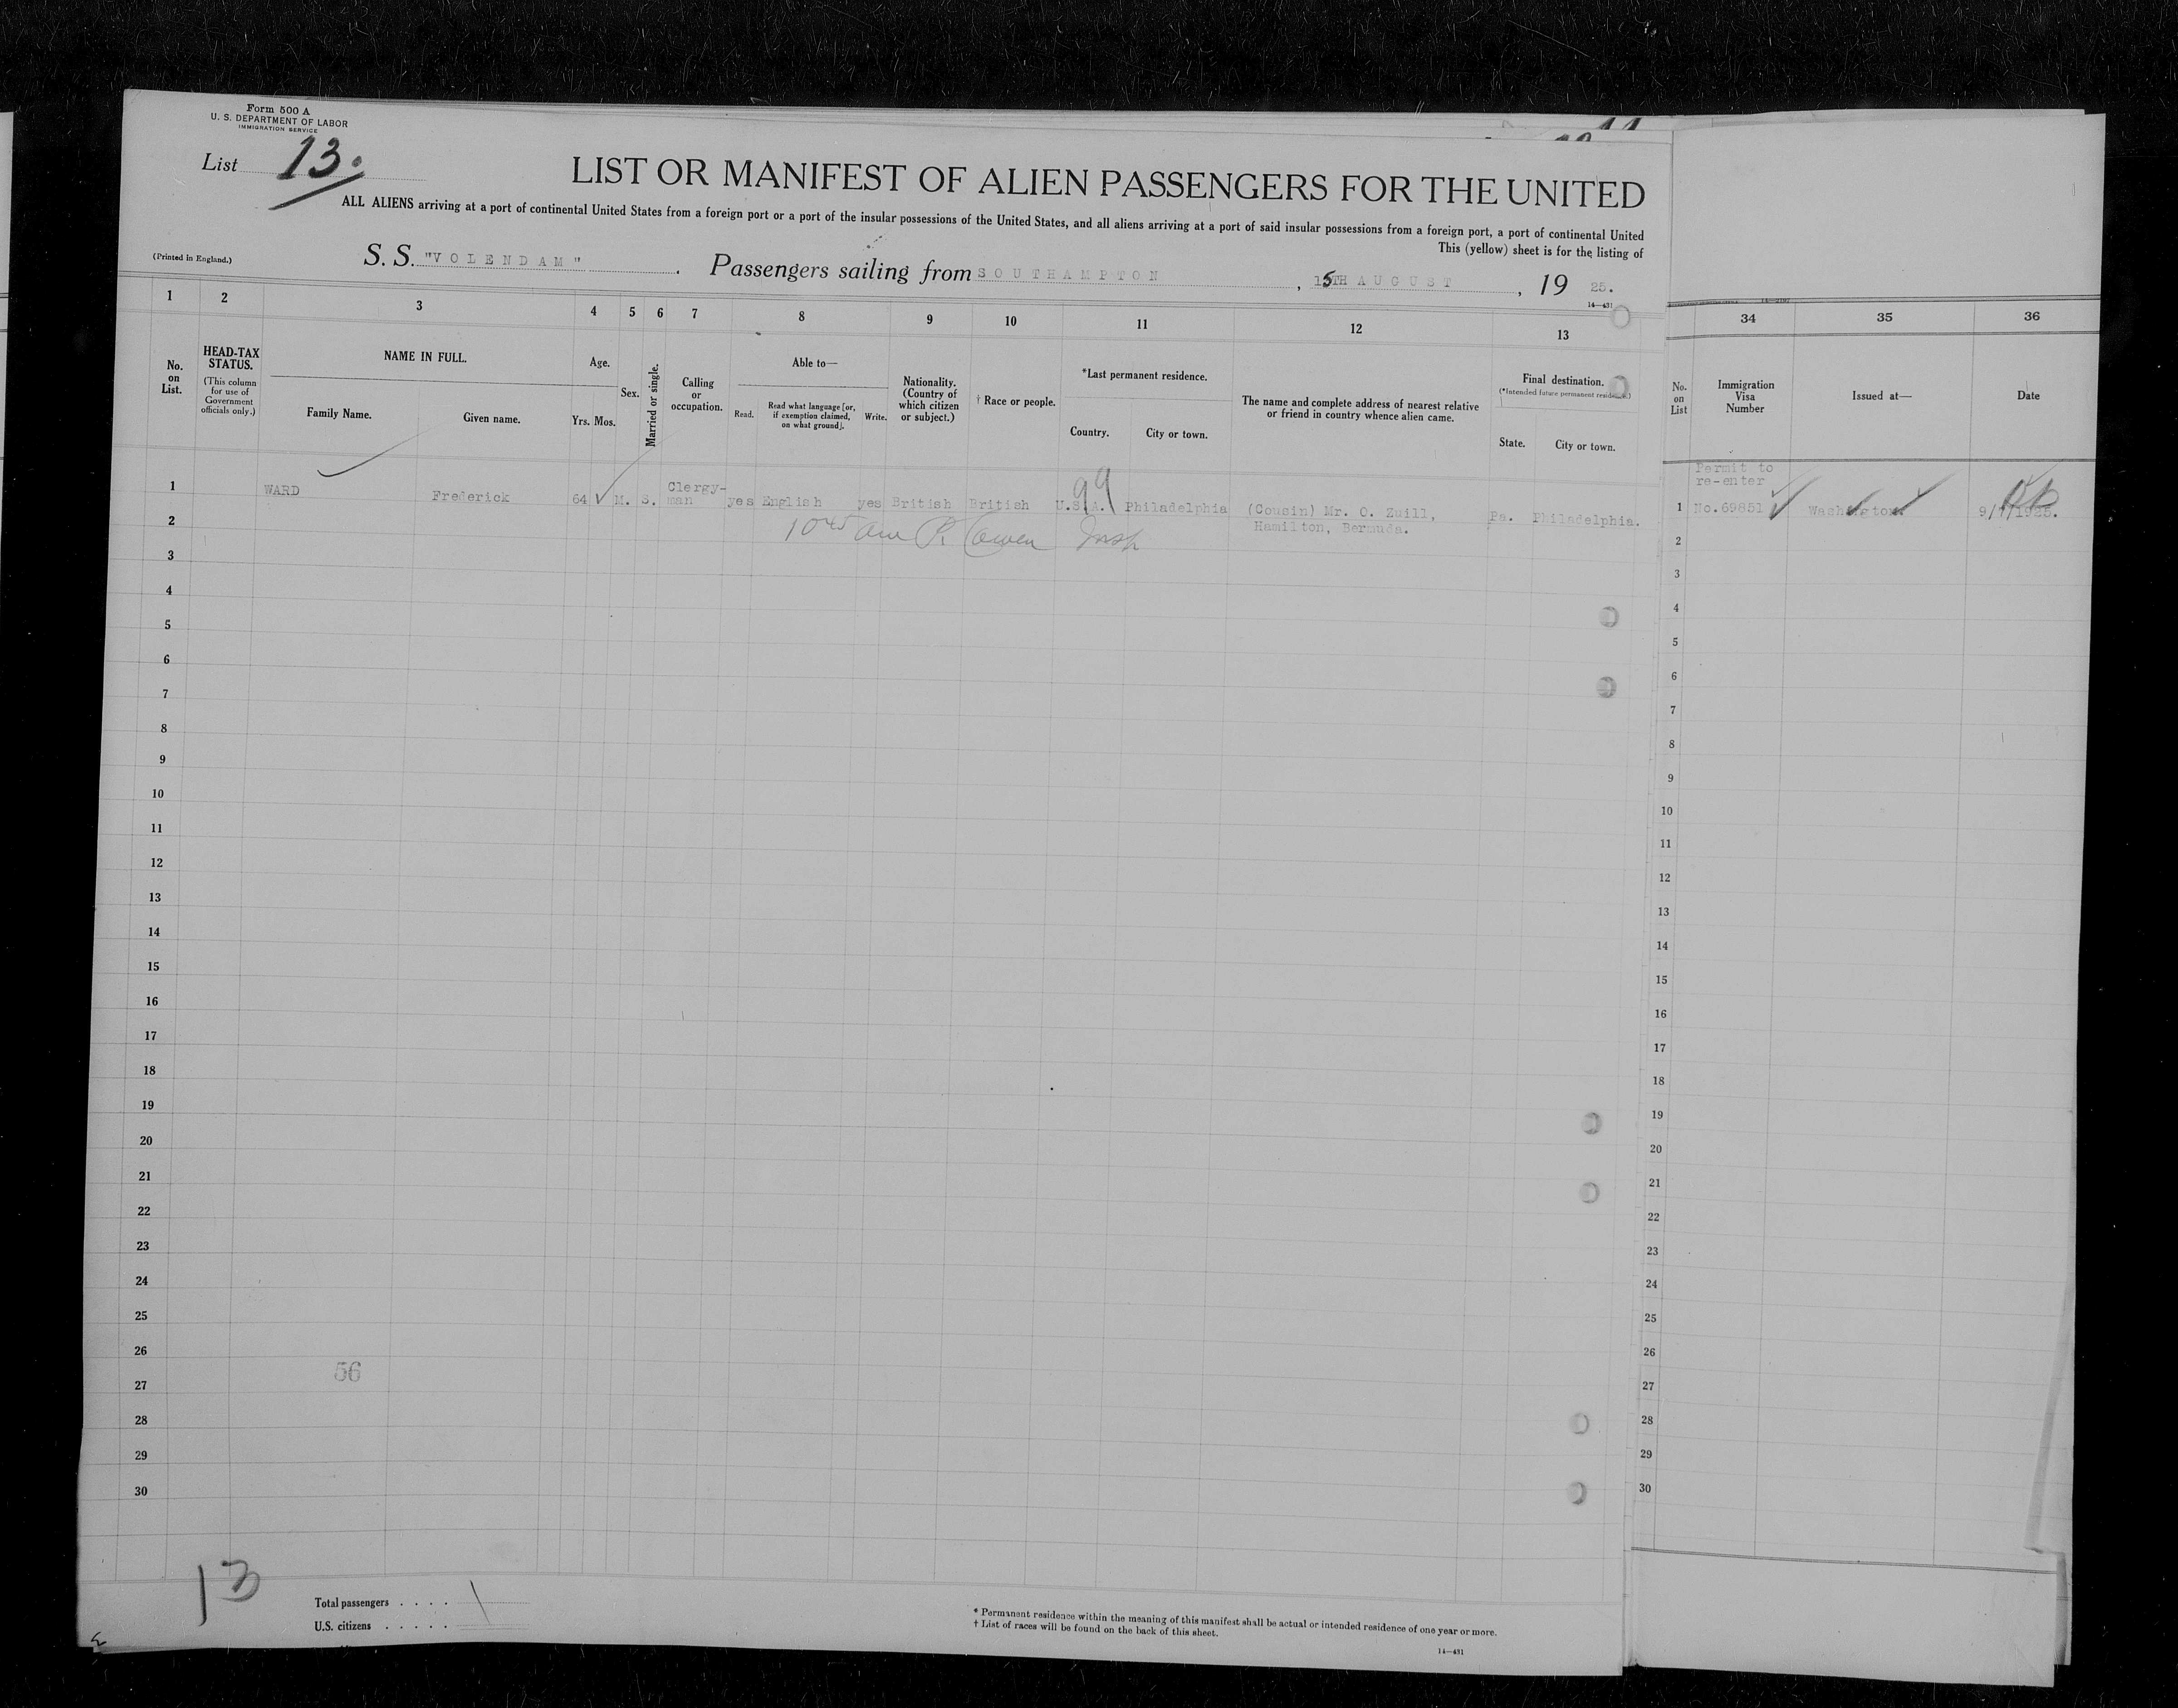 Form 500 A
U. S. DEPARTMENT OF LABOR
IMMIGRATION SERVICE
List 13.
LIST OR MANIFEST OF ALIEN PASSENGERS FOR THE UNITED
ALL ALIENS arriving at a port of continental United States from a foreign port or a port of the insular possessions of the United States, and all aliens arriving at a port of said insular possessions from a foreign port, a port of continental United
This (yellow) sheet is for the listing of
(Printed in England.)
S. S. "VOLENDAM" . Passengers sailing from SOUTHAMPTON , 15TH AUGUST , 19 25.
14—431
1 2 3 4 5 6 7 8 9 10 11 12 13
No. on List.
HEAD-TAX STATUS.
(This column for use of Government officials only.)
NAME IN FULL.
Family Name.
Given name.
Age.
Yrs. Mos.
Sex.
Married or single.
Calling or occupation.
Able to—
Read.
Read what language [or, if exemption claimed, on what ground].
Write.
Nationality. (Country of which citizen or subject.)
† Race or people.
*Last permanent residence.
Country.
City or town.
The name and complete address of nearest relative or friend in country whence alien came.
Final destination.
(*Intended future permanent residence.)
State.
City or town.
34 35 36
No. on List
Immigration Visa Number
Issued at—
Date
1 WARD Frederick 64 M. S. Clergy-man yes English yes British British U.S.A. Philadelphia (Cousin) Mr. O. Zuill, Hamilton, Bermuda. Pa. Philadelphia.
99
1045 am Insp
Permit to re-enter
1 No.69851 Washington
2
3
4
5
6
7
8
9
10
11
12
13
14
15
16
17
18
19
20
21
22
23
24
25
26
27
28
29
30
2
3
4
5
6
7
8
9
10
11
12
13
14
15
16
17
18
19
20
21
22
23
24
25
26
27
28
29
30
56
13
Total passengers . . . .
U.S. citizens . . . . .
* Permanent residence within the meaning of this manifest shall be actual or intended residence of one year or more.
† List of races will be found on the back of this sheet.
14—431